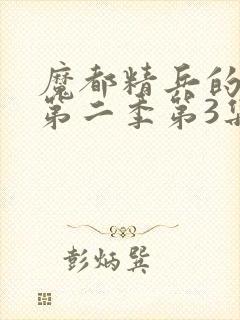 魔都精兵的
第二季第3集
彭炳巽